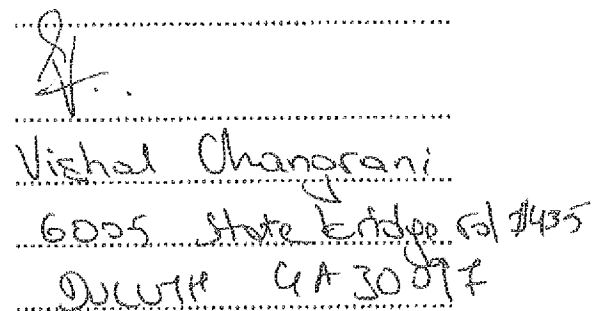 Vishal Changrani
6005 State bridge rd #435
DULUTH GA 30097